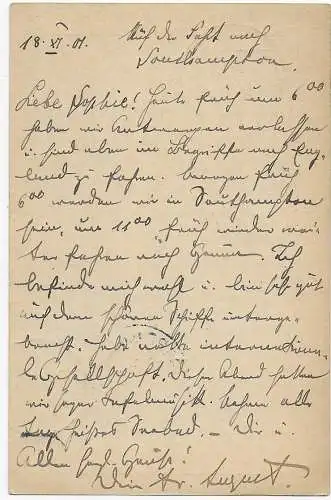 18. XI. 01. Auf der Fahrt nach
Southampton.
Liebe Sophie! Heute früh um 6 00
haben wir Antwerpen verlassen
u. sind eben im Begriffe nach Eng-
land zu fahren. Morgen früh
6 00 werden wir in Southampton
sein, um 11 00 früh wieder wei-
ter fahren nach Genua. Ich
befinde mich wohl u. bin sehr gut
auf dem schönen Schiffe unterge-
bracht. Habe nette internationa-
le Gesellschaft. Diesen Abend hatten
wir sogar Tafelmusik. Nehmen alle
Tage heißes Seebad. – Dir u.
Allen herzl. Grüße!
Dein Br. August.